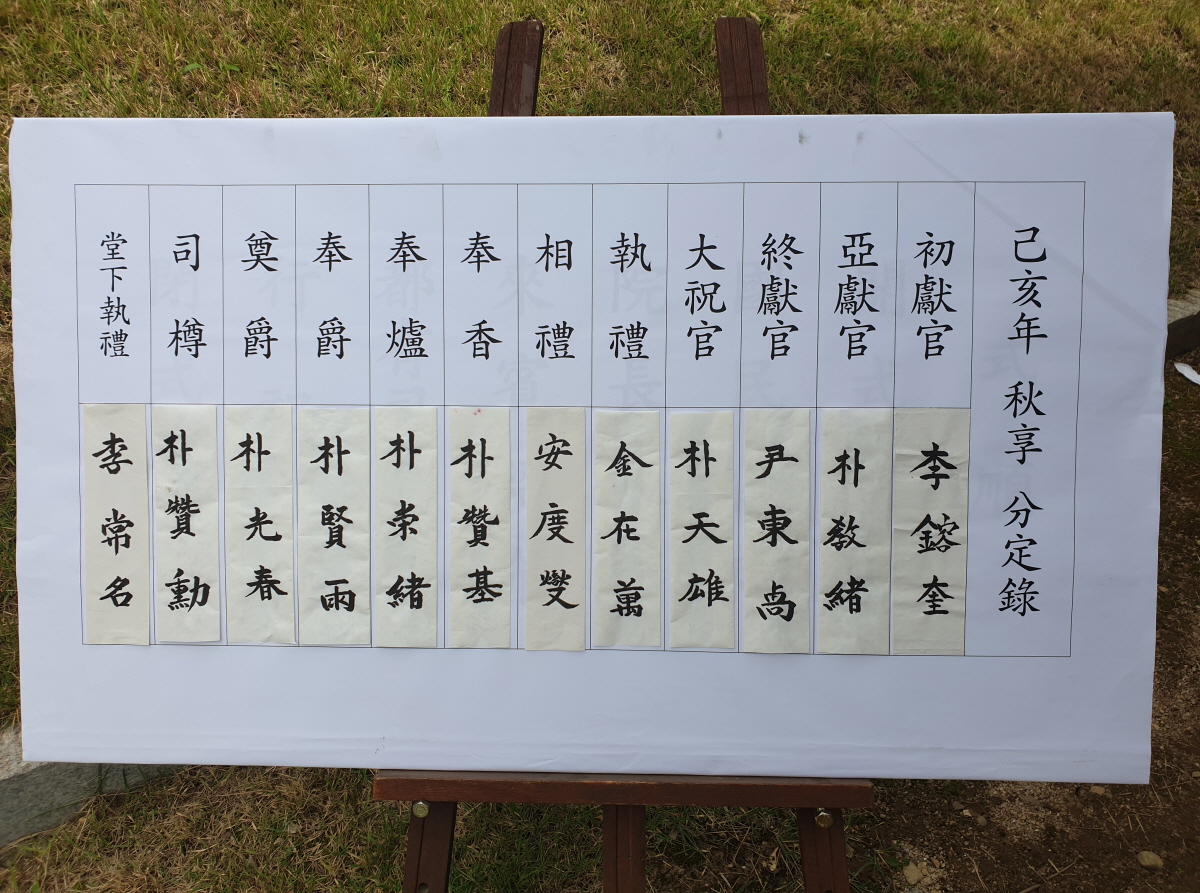 己亥年 秋享 分定錄
初獻官 李鎔奎
亞獻官 朴敎緖
終獻官 尹東卨
大祝官 朴天雄
執禮 金在萬
相禮 安度燮
奉香 朴贊基
奉爐 朴崇緖
奉爵 朴賢雨
奠爵 朴光春
司樽 朴贊勳
堂下執禮 李常名